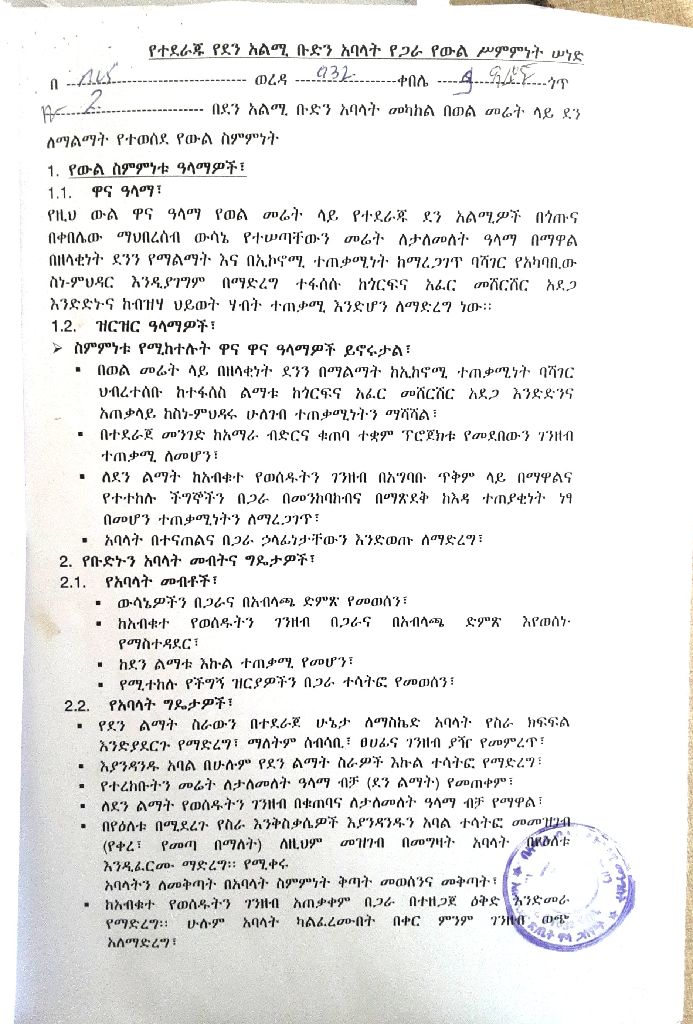 የተደራጁ የደን አልሚ ቡድን አባላት የጋራ የውል ሥምምነት ሠነድ
በ ወረዳ 032 ቀበሌ ጎጥ
2 በደን አልሚ ቡድን አባላት መካከል በወል መሬት ላይ ደን
ለማልማት የተወሰደ የውል ስምምነት
1. የውል ስምምነቱ ዓላማዎች፣
1.1. ዋና ዓላማ፣
የዚህ ውል ዋና ዓላማ የወል መሬት ላይ የተደራጁ ደን አልሚዎች በጎጡና
በቀበሌው ማህበረሰብ ውሳኔ የተሠጣቸውን መሬት ለታለመለት ዓላማ በማዋል
በዘላቂነት ደንን የማልማት እና በኢኮኖሚ ተጠቃሚነት ከማረጋገጥ ባሻገር የአካባቢው
ስነ-ምህዳር እንዲያገግም በማድረግ ተፋሰሱ ከጎርፍና አፈር መሸርሸር አደጋ
እንድድኑና ከብዝሃ ህይወት ሃብት ተጠቃሚ እንድሆን ለማድረግ ነው።
1.2. ዝርዝር ዓላማዎች፣
➢ ስምምነቱ የሚከተሉት ዋና ዋና ዓላማዎች ይኖሩታል፣
▪ በወል መሬት ላይ በዘላቂነት ደንን በማልማት ከኢከኖሚ ተጠቃሚነት ባሻገር
ህብረተሰቡ ከተፋሰስ ልማቱ ከጎርፍና አፈር መሸርሸር አደጋ እንድድንና
አጠቃላይ ከስነ-ምህዳሩ ሁለገብ ተጠቃሚነትን ማሻሻል፣
▪ በተደራጀ መንገድ ከአማራ ብድርና ቁጠባ ተቋም ፕሮጀክቱ የመደበውን ገንዘብ
ተጠቃሚ ለመሆን፣
▪ ለደን ልማት ከአብቁተ የወሰዱትን ገንዘብ በአግባቡ ጥቅም ላይ በማዋልና
የተተከሉ ችግኞችን በጋራ በመንከባከብና በማጽደቅ ከእዳ ተጠያቂነት ነፃ
በመሆን ተጠቃሚነትን ለማረጋገጥ፣
▪ አባላት በተናጠልና በጋራ ኃላፊነታቸውን እንድወጡ ለማድረግ፣
2. የቡድኑን አባላት መብትና ግዴታዎች፣
2.1. የአባላት መብቶች፣
▪ ውሳኔዎችን በጋራና በአብላጫ ድምጽ የመወሰን፣
▪ ከአብቁተ የወሰዱትን ገንዘብ በጋራና በአብላጫ ድምጽ እየወሰኑ
የማስተዳደር፣
▪ ከደን ልማቱ እኩል ተጠቃሚ የመሆን፣
▪ የሚተከሉ የችግኝ ዝርያዎችን በጋራ ተሳትፎ የመወሰን፣
2.2. የአባላት ግዴታዎች፣
▪ የደን ልማት ስራውን በተደራጀ ሁኔታ ለማስኬድ አባላት የስራ ክፍፍል
እንድያደርጉ የማድረግ፣ ማለትም ሰብሳቢ፣ ፀሀፊና ገንዘብ ያዥ የመምረጥ፣
▪ እያንዳንዱ አባል በሁሉም የደን ልማት ስራዎች እኩል ተሳትፎ የማድረግ፣
▪ የተረከቡትን መሬት ለታለመለት ዓላማ ብቻ (ደን ልማት) የመጠቀም፣
▪ ለደን ልማት የወሰዱትን ገንዘብ በቁጠባና ለታለመለት ዓላማ ብቻ የማዋል፣
▪ በየዕለቱ በሚደረጉ የስራ እንቅስቃሴዎች እያንዳንዱን አባል ተሳትፎ መመዝገብ
(የቀረ፣ የመጣ በማለት) ለዚህም መዝገብ በመግዛት አባላት በየዕለቱ
እንዲፈርሙ ማድረግ። የሚቀሩ
አባላትን ለመቅጣት በአባላት ስምምነት ቅጣት መወሰንና መቅጣት፣
▪ ከአብቁተ የወሰዱትን ገንዘብ አጠቃቀም በጋራ በተዘጋጀ ዕቅድ እንድመራ
የማድረግ። ሁሉም አባላት ካልፈረሙበት በቀር ምንም ገንዘብ ወጭ
አለማድረግ፣